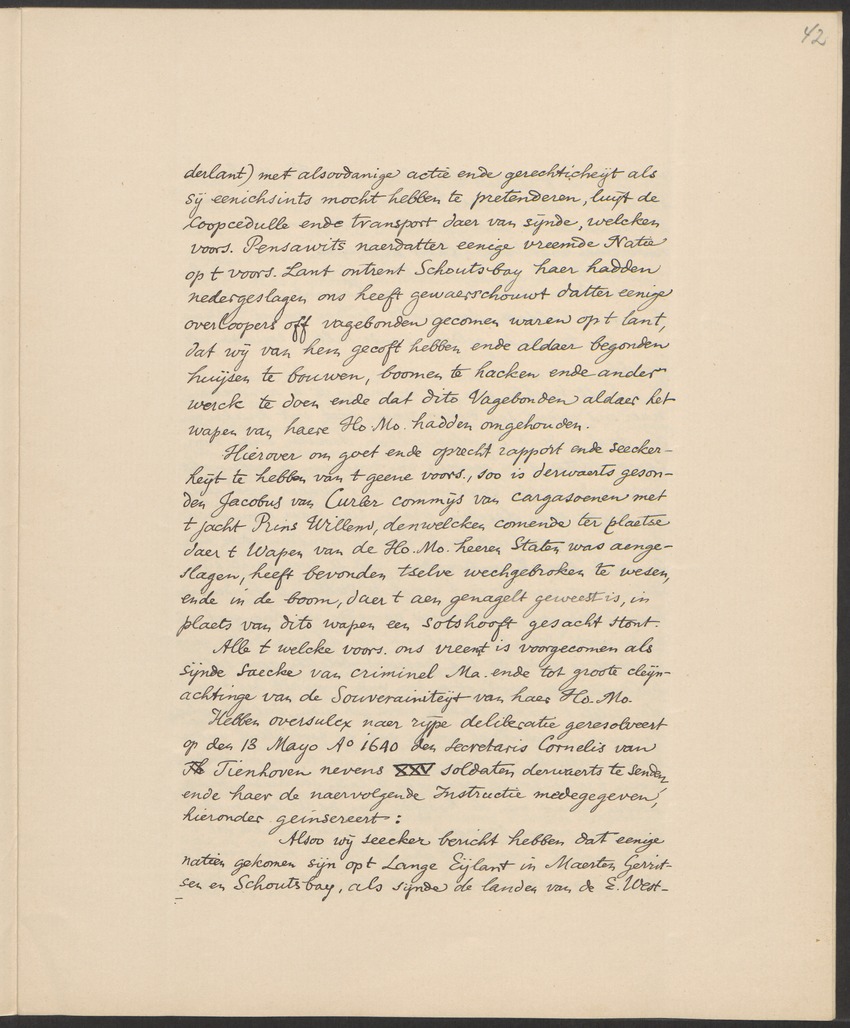 42
derlant) met alsoodanige actie ende gerechticheijt als
sij eenichsints mocht hebben te pretenderen, luijt de
Coopcedulle ende transport daer van sijnde, welcken
voors. Pensawits naerdatter eenige vreemde Natie
op t voors. Lant ontrent Schoutsbay haer hadden
nedergeslagen ons heeft gewaerschouwt datter eenige
overloopers off vagebonden gecomen waren opt lant,
dat wij van hem gecoft hebben ende aldaer begonden
huijsen te bouwen, boomen te hacken ende ander
werck te doen ende dat dito Vagebonden aldaer het
wapen van haere Ho. Mo. hadden omgehouden.
Hierover om goet ende oprecht rapport ende seecker-
heijt te hebben van t geene voors., soo is derwaerts geson-
den Jacobus van Curler commijs van cargasoenen met
t jacht Prins Willem, denwelcken comende ter plaetse
daer t Wapen van de Ho. Mo. heeren Staten was aenge-
slagen, heeft bevonden tselve wechgebroken te wesen,
ende in de boom, daer t aen genagelt geweest is, in
plaets van dito wapen een sotshooft gesacht stont.
Alle t welcke voors. ons vreemt is voorgecomen als
sijnde saecke van criminel Ma. ende tot groote cleijn-
achtinge van de Souverainiteijt van haer Ho. Mo.
Hebben oversulex naer rijpe deliberatie geresolveert
op den 13 Mayo Ao 1640 den Secretaris Cornelis van
Tienhoven nevens XXV soldaten derwaerts te senden
ende haer de naervolgende Instructie medegegeven,
hieronder geinsereert:
Alsoo wij seecker bericht hebben dat eenige
natien gekomen sijn opt Lange Eijlant in Maerten Gerrit-
sen en Schoutsbay, als sijnde de landen van de E. West-